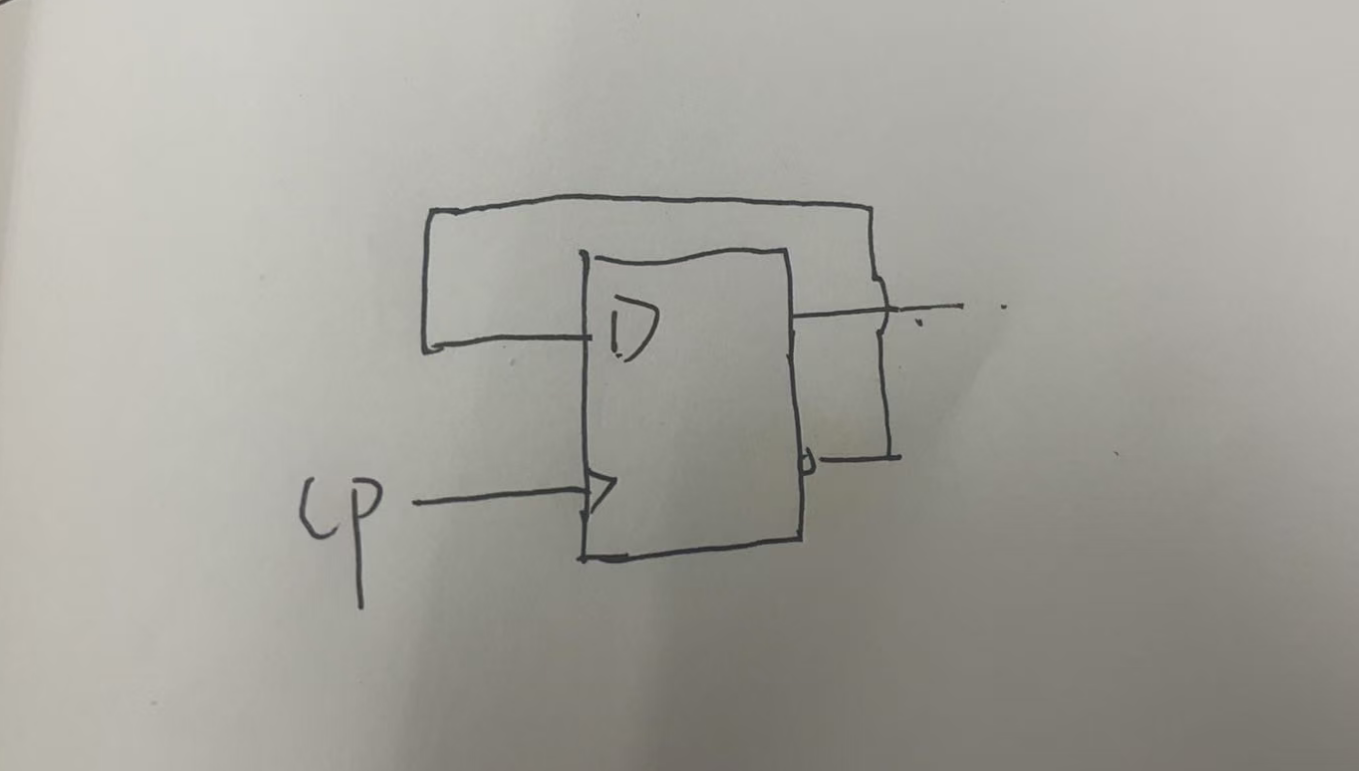 D
CP